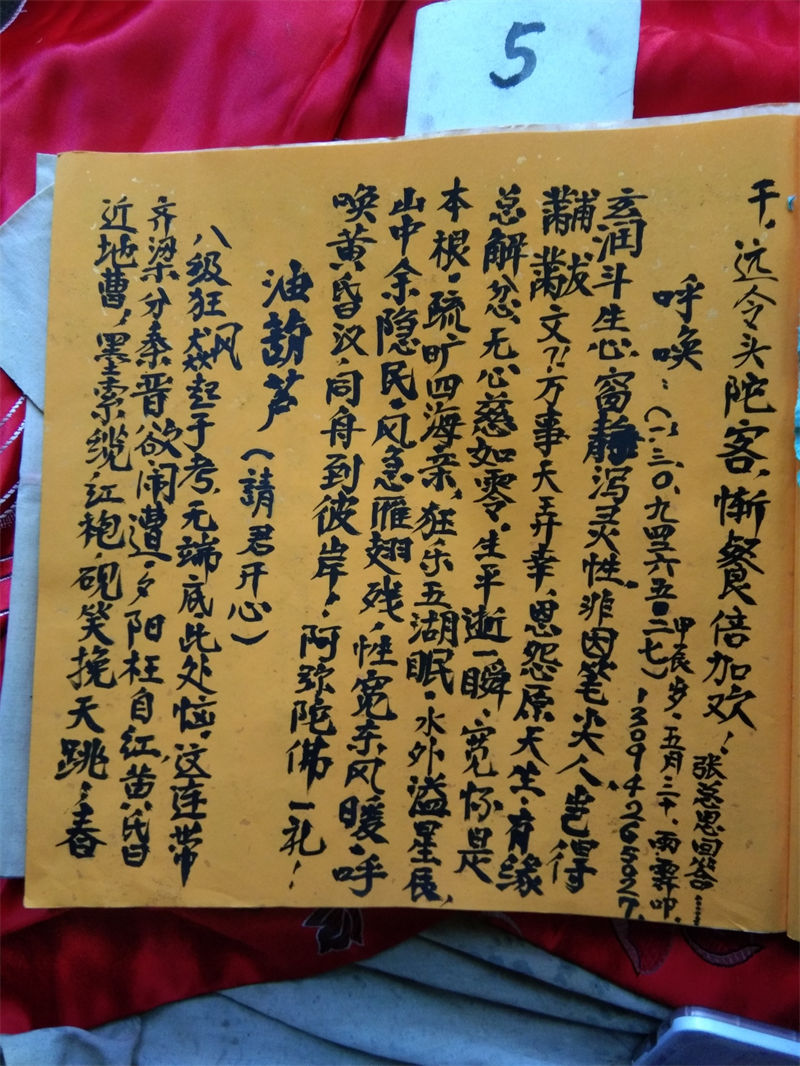 5
干，远令头陀客，惭餐倍加欢！
张总思回答……
呼唤：（一三〇、九四二六五〇二七）
甲辰岁，五月三十，雨霁叩，
13094265027，
玄润斗生心，窗静泻灵性。非因笔尖人，岂得
黼黻文？！万事天弄幸，恩怨原天生，有缘
总解忿，无心慈如零，生平逝一瞬，宽怀是
本根。疏旷四海亲，狂乐五湖眠。水外溢星辰，
山中余隐民，风急雁翅残，性宽东风暖，呼
唤黄昏汉，同舟到彼岸！阿弥陀佛一礼！
油葫芦（請君开心）
八级狂风㷼起于考，无端底此处恼，这连带
齐梁分秦晋欲闹遭，夕阳枉自红，黄昏
近地曹，墨索缆，红袍，砚笑挽天跳，春